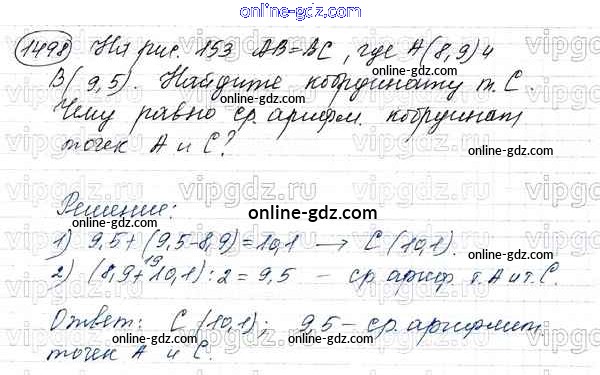 online-gdz.com
1498 На рис. 153 AB=BC, где A(8,9) и
B(9,5). Найдите координату т. C.
Чему равно ср. арифм. координат
точек A и C?
Решение:
1) 9,5+(9,5-8,9)=10,1 → C(10,1).
2) (8,9+10,1):2=9,5 – ср. ариф. т. A и т. C.
19
Ответ: C(10,1); 9,5 – ср. арифмет.
точек A и C.
online-gdz.com
online-gdz.com
online-gdz.com
online-gdz.com
online-gdz.com
online-gdz.com
vipgdz.ru
vipgdz.ru
vipgdz.ru